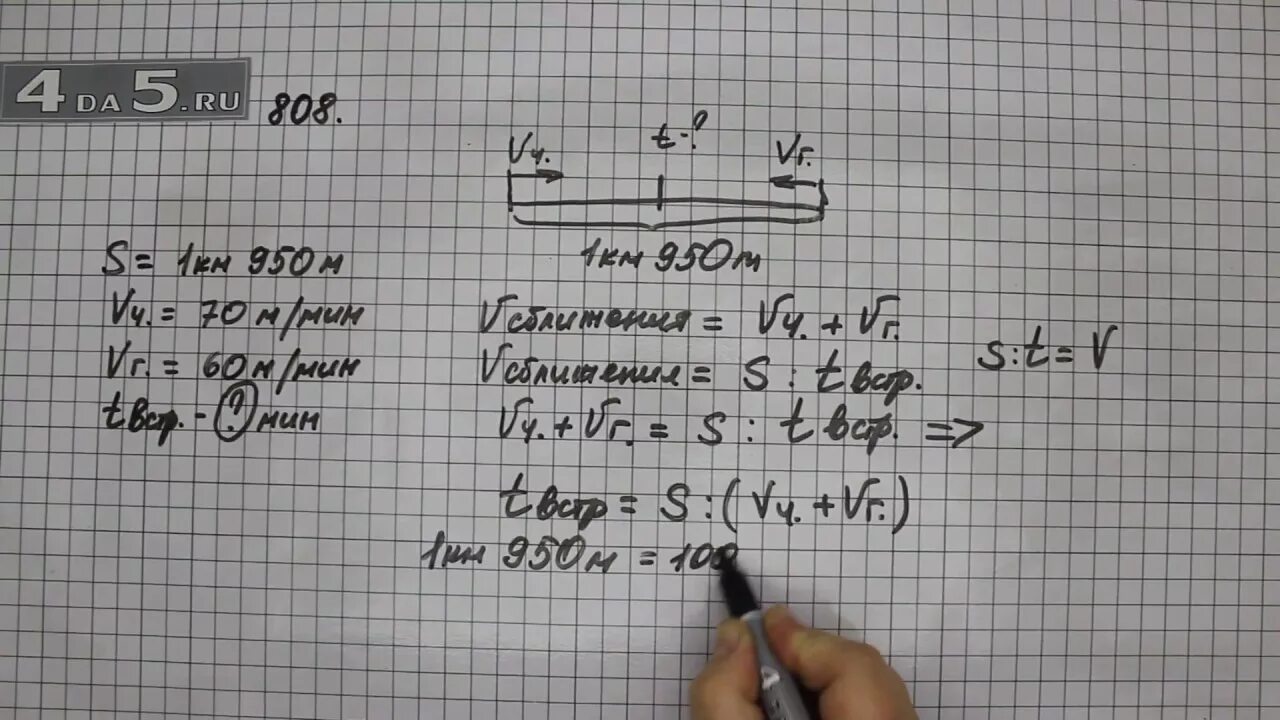 4DA5.RU
808.
t-?
Vч.
Vг.
1км 950м
S = 1км 950м
Vч. = 70 м/мин
Vг. = 60 м/мин
tвстр. - ? мин
Vсближения = Vч. + Vг.
Vсближения = S : tвстр.
S : t = V
Vч. + Vг. = S : tвстр. =>
tвстр = S : (Vч. + Vг.)
1км 950м = 100